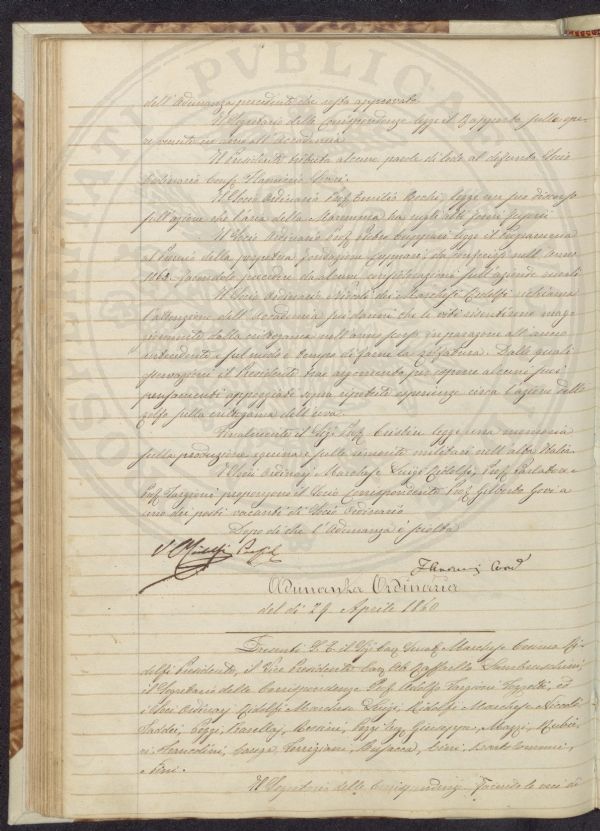 dell'Adunanza precedente che resta approvata
Il Segretario delle Corrispondenze legge il Rapporto sulle ope-
re venute in dono all'Accademia
Il Presidente tributa alcune parole di lode al defunto Socio
Ordinario Conf.
Il Socio Ordinario Prof. Emilio Bechi legge un suo discorso
sull'azione che l'aria della Maremma ha negli alti forni fusori
Il Socio Ordinario Prof. Pietro Cuppari legge il Programma
al Premio della perpetua fondazione Cuppari, da conferirsi nell'anno
1863 facendolo precedere da alcune considerazioni sull'aziende rurali
Il Socio Ordinario Niccolò dei Marchesi Ridolfi richiama
l'attenzione dell'Accademia sui danni che le viti risentirono mag-
giormente dalla crittogama nell'anno in paragone all'anno
antecedente e sul modo e tempo di farne la zolfatura. Dalle quali
osservazioni il Presidente trae argomento per esporre alcuni suoi
pensamenti appoggiati sopra ripetute esperienze circa l'azione dello
zolfo sulla crittogama dell'uva.
Finalmente il Sig. Prof. legge una memoria
sulla produzione equina e sulle rimonte militari nell'alta Italia.
I Soci Ordinarj Marchese Luigi Ridolfi, Prof. Parlatore e
Prof. Targioni propongono il Socio Corrispondente Prof. Gilberto Govi a
uno dei posti vacanti di Socio Ordinario
Dopo di che l'Adunanza è sciolta
C Ridolfi
Adunanza Ordinaria
del dì 29 Aprile 1860
Presenti S. E. il Sig. Cav. Senat. Marchese Cosimo Ri-
dolfi Presidente, il Vice Presidente Cav. Ab. Raffaello Lambruschini,
il Segretario delle Corrispondenze Prof. Adolfo Targioni Tozzetti, ed
i Soci Ordinarj Ridolfi Marchese Luigi, Ridolfi Marchese Niccolò
Taddei, Poggi, Rossini, Poggi Giuseppe, Mazzi, Rubie-
ri
e
Il Segretario delle Corrispondenze facendo le veci di